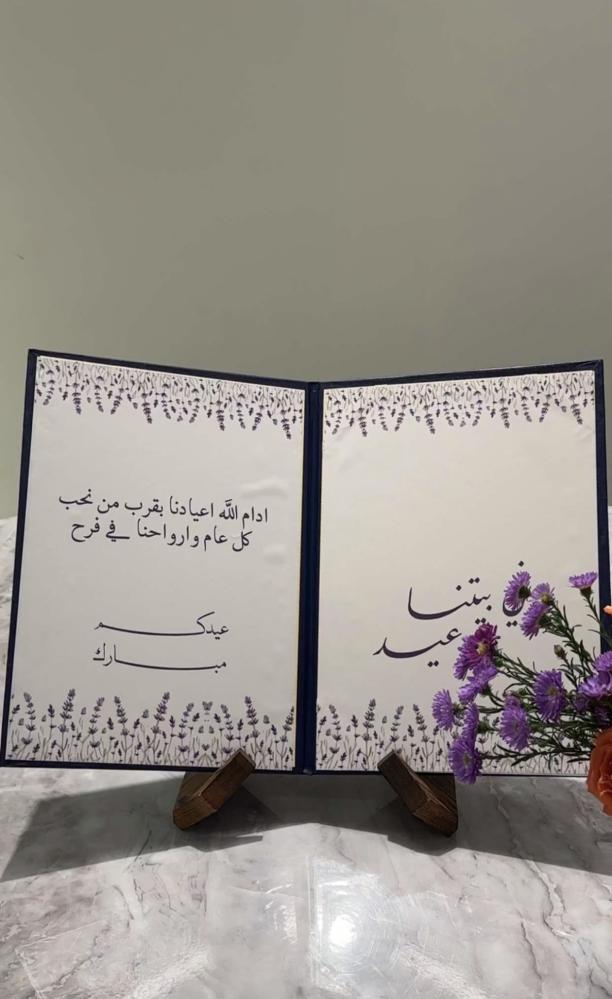 في بيتنا
عيد
ادام الله اعيادنا بقرب من نحب
كل عام وارواحنا في فرح
عيدكم
مبارك